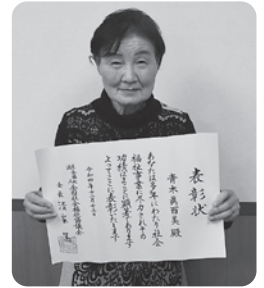 表彰状
青木眞百美 殿
あなたは多年にわたり社会
福祉事業に尽力されその
功績はまことに顕著であります
よってここに表彰いたします
令和四年十一月十八日